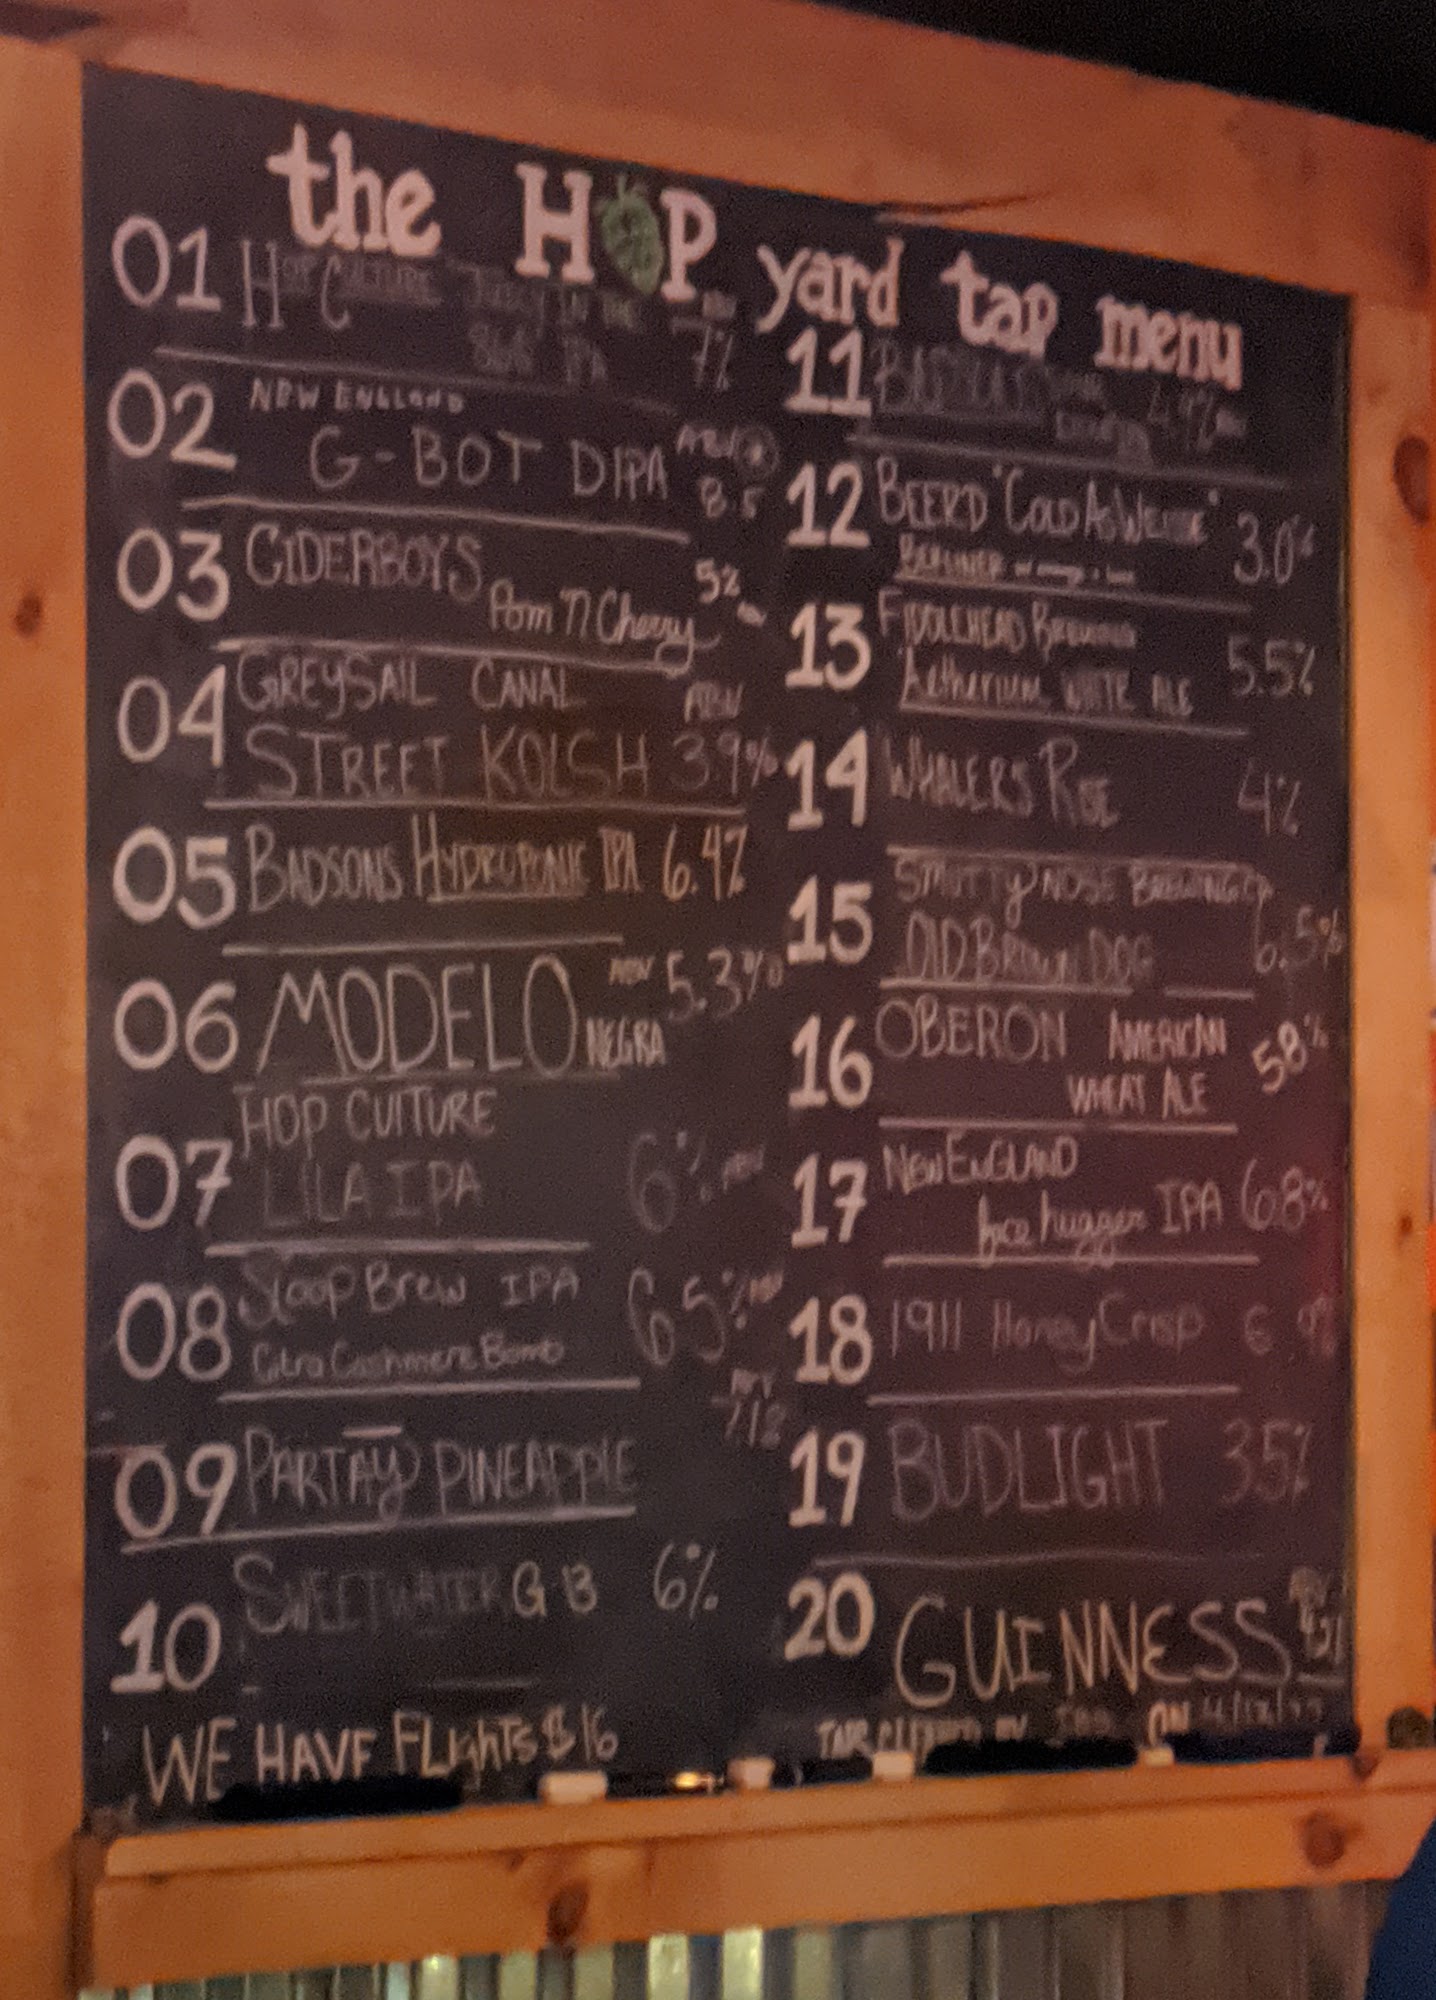 the HOP yard tap menu
01 HOP CULTURE JUICY IN THE
IPA 7%
02 NEW ENGLAND
G-BOT DIPA 8.5
03 CIDERBOYS 5%
Pom 'N Cherry
04 GREYSAIL CANAL ABV
STREET KOLSH 3.9%
05 BADSONS HYDROPONIC IPA 6.4%
06 MODELO NEGRA ABV 5.3%
HOP CULTURE
07 LILA IPA 6% ABV
08 Sloop Brew IPA 6.5% ABV
Citra Cashmere Bomb
09 PARTAY PINEAPPLE
10 SWEETWATER G 13 6%
WE HAVE FLIGHTS $16
11 4.9%
12 BEERD "COLD AS WEISSE" 3.0%
BERLINER
13 FIDDLEHEAD BREWING
Aetherium WHITE ALE 5.5%
14 WHALERS RISE 4%
15 SMUTTYNOSE BREWING Co.
OLD BROWN DOG 6.5%
16 OBERON AMERICAN
WHEAT ALE 5.8%
17 NEW ENGLAND
face hugger IPA 6.8%
18 1911 Honey Crisp
19 BUDLIGHT 3.5%
20 GUINNESS
ON